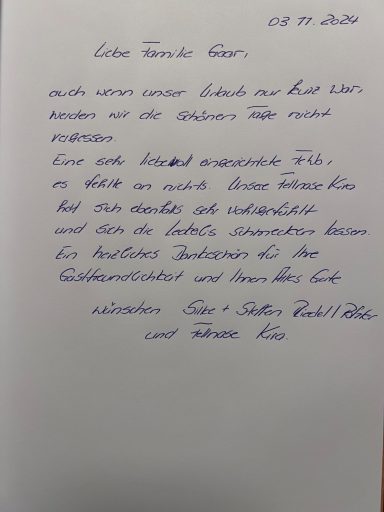 03.11.2024
Liebe Familie Gaar,
auch wenn unser Urlaub nur kurz war,
werden wir die schönen Tage nicht
vergessen.
Eine sehr liebevoll eingerichtete Fewo,
es fehlte an nichts. Unsere Fellnase Kira
hat sich ebenfalls sehr wohlgefühlt
und sich die Leckerlis schmecken lassen.
Ein herzliches Dankeschön für Ihre
Gastfreundlichkeit und Ihnen Alles Gute
wünschen Silke + Steffen Riedel /
und Fellnase Kira.